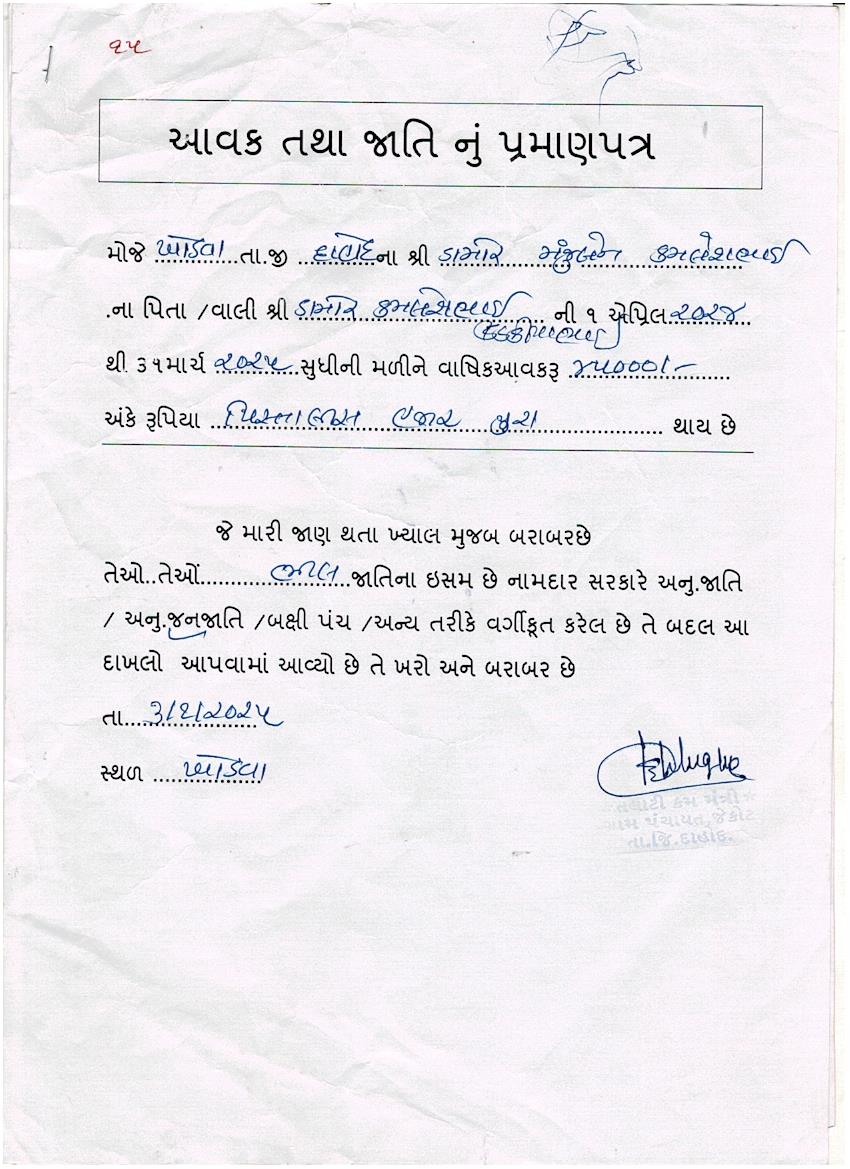 ૨૫
આવક તથા જાતિ નું પ્રમાણપત્ર
મોજે ખોડવા તા.જી દાહોદના શ્રી ડામોર મંજુબેન કમલેશભાઈ
.ના પિતા /વાલી શ્રી ડામોર કમલેશભાઈ ની ૧ એપ્રિલ ૨૦૨૪
થી ૩૧માર્ચ ૨૦૨૫ સુધીની મળીને વાષિકઆવકરૂ ૪૫૦૦૦/-
અંકે રૂપિયા પિસ્તાલીસ હજાર પુરા થાય છે
જે મારી જાણ થતા ખ્યાલ મુજબ બરાબરછે
તેઓ..તેઓં ભીલ જાતિના ઇસમ છે નામદાર સરકારે અનુ.જાતિ
/ અનુ.જનજાતિ /બક્ષી પંચ /અન્ય તરીકે વર્ગીકૃત કરેલ છે તે બદલ આ
દાખલો આપવામાં આવ્યો છે તે ખરો અને બરાબર છે
તા. ૩/૬/૨૦૨૫
સ્થળ ખોડવા
તલાટી કમ મંત્રી
ગ્રામ પંચાયત,જેકોટ
તા.જિ.દાહોદ.